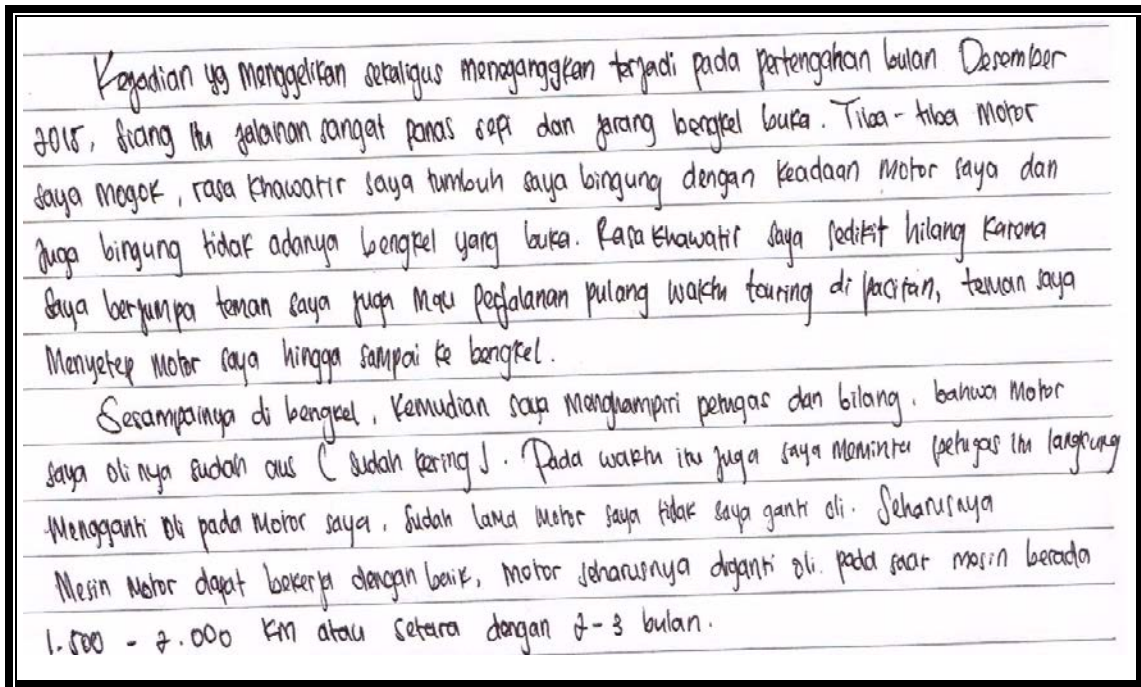 Kejadian yg menggelikan sekaligus meneganggkan terjadi pada pertengahan bulan Desember
2015, siang itu jalanan sangat panas sepi dan jarang bengkel buka. Tiba-tiba motor
saya mogok, rasa khawatir saya tumbuh saya bingung dengan keadaan motor saya dan
juga bingung tidak adanya bengkel yang buka. Rasa khawatir saya sedikit hilang karena
saya berjumpa teman saya juga mau perjalanan pulang waktu touring di pacitan, teman saya
Menyetep motor saya hingga sampai ke bengkel.
Sesampainya di bengkel, kemudian saya menghampiri petugas dan bilang, bahwa motor
saya oli nya sudah aus (sudah kering). Pada waktu itu juga saya meminta petugas itu langsung
Mengganti oli pada motor saya, sudah lama motor saya tidak saya ganti oli. Seharusnya
Mesin motor dapat bekerja dengan baik, motor seharusnya diganti oli pada saat mesin berada
1.500 - 2.000 KM atau setara dengan 2-3 bulan.